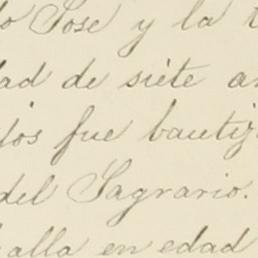 o José y la
dad de siete a
dos fue bautiz
del Sagrario.
alla en edad